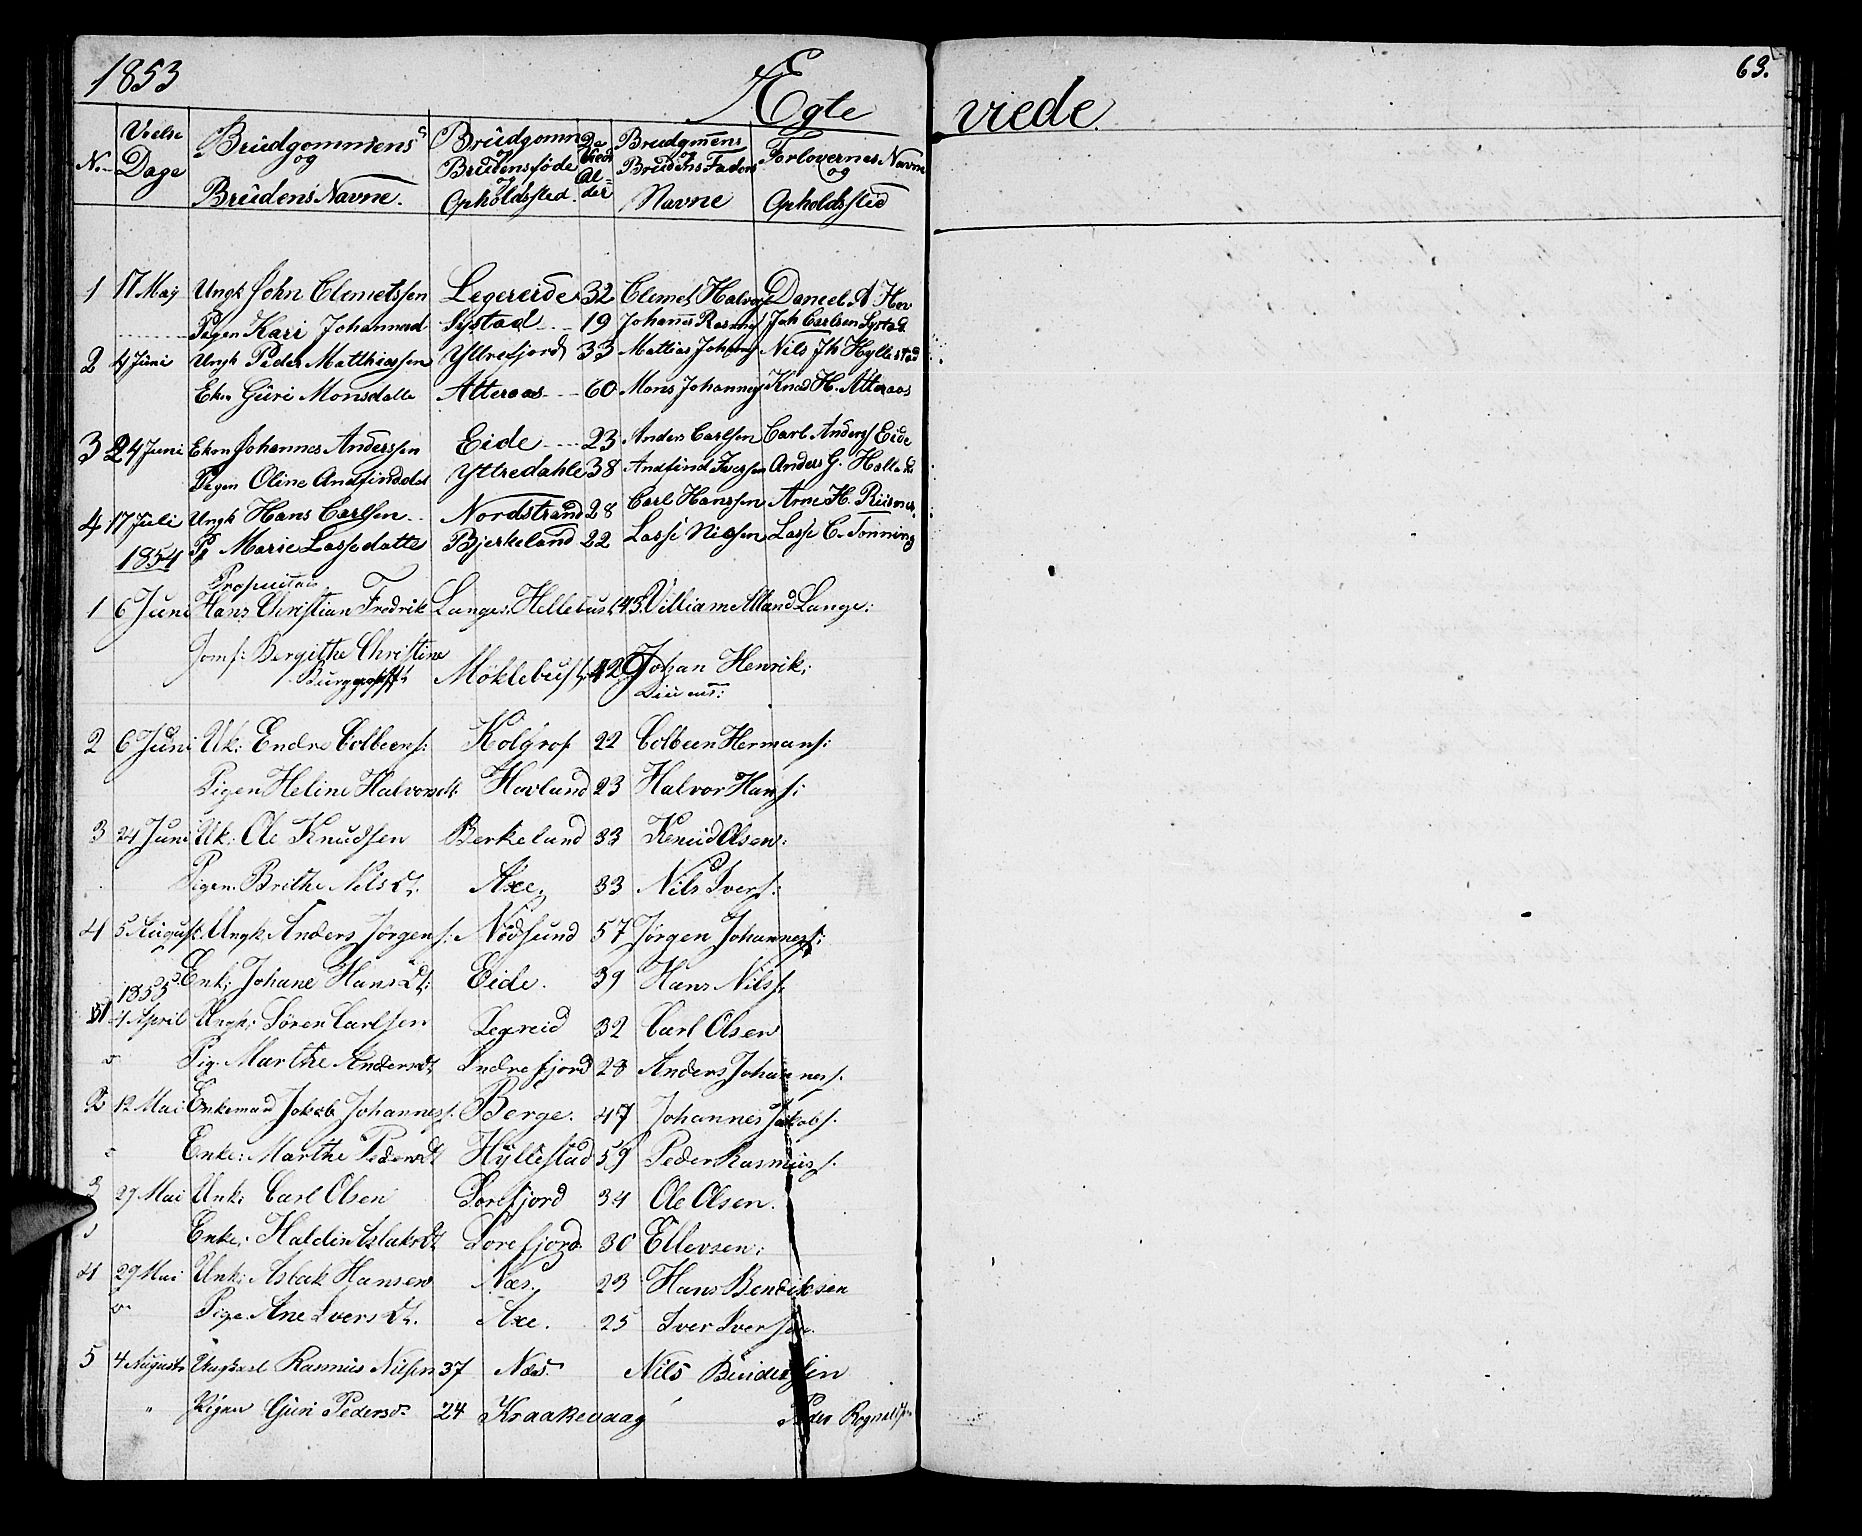 1853
Ægte viede.
63.
No Vielse Dage Brudgommens og Brudens Navne. Brudgomm og Brudens føde og Opholdssted. De Vieds Alder Brudgmens og Brudens Faders Navne Forlovernes Navne og Opholdssted
1 17 Maj Ungk John Clemetssen Legereide 32 Clemet Halvors Daniel A Hov
Pigen Kari Johannesd Systad 19 Johanes Rasmus Joh Carlsen Systad
2 4 Juni Ungk Peder Matthiassen Yttrefjord 33 Mattias Johans Nils Jh Hyllestad
Eken Guri Monsdatte Atteraas 60 Mons Johannes Knud H. Atteraas
3 24 Juni Ekem Johannes Anderssen Eide 23 Anders Carlsen Carl Anders Eide
Pigen Oline Andfindsdat Yttredahle 38 Andfind Iversen Anders G. Holla
4 17 Juli Ungk Hans Carlsen Nordstrand 28 Carl Hanssen Arne H.
Pg Marie Lassedatte Bjerkeland 22 Lasse Nielsen Lasse C. Tonning
1854
Propritair
1 6 Juni Hans Christian Fredrik Langes: Hellebust 45. Villiam Lange:
Jomf: Bergithe Christine Møklebust: 42 Johan Henrik:
2 6 Juni Uk: Endre Colbeens: Kolgrof 22 Colbeen Hermans:
Pigen Heline Halvorsdt: Hovland 23 Halvor Hans:
3 24 Juni Uk: Ole Knudsen Berkeland 33 Knud Olsen:
Pigen. Brithe Nilsdt. Axe, 33 Nils Ivers:
4 5 August Ungk: Anders Jørgens: Nødsund 57 Jørgen Johannes:
Enk: Johane Hansdt: Eide. 39 Hans Nils:
1855
1 4 April Ungk: Søren Carlsen Legreid 32 Carl Olsen
Pig. Marthe Andersdt. Indrefjord 28 Anders Johannes:
2 12 Mai Enkemand Jakob Johannes: Berge. 47 Johannes Jakobs.
Enke: Marthe Pedersdt Hyllestad 59 Peder Rasmus:
3 29 Mai Unk: Carl Olsen Sørefjord 34 Ole Olsen.
Enke: Haldin Aslaksdt. Sørefjord. 30 Ellevsen:
4 29 Mai Unk: Aslak Hansen Næs. 23 Hans Bendiksen
Pige Ane Iversdt. Axe. 25 Iver Iversen.
5 4 Augusts Ungkarl Rasmus Nilsen 37 Næs. Nils Bendixsen
" Pigen Guri Pedersd. 24 Kraakevaag Peder Rognalds